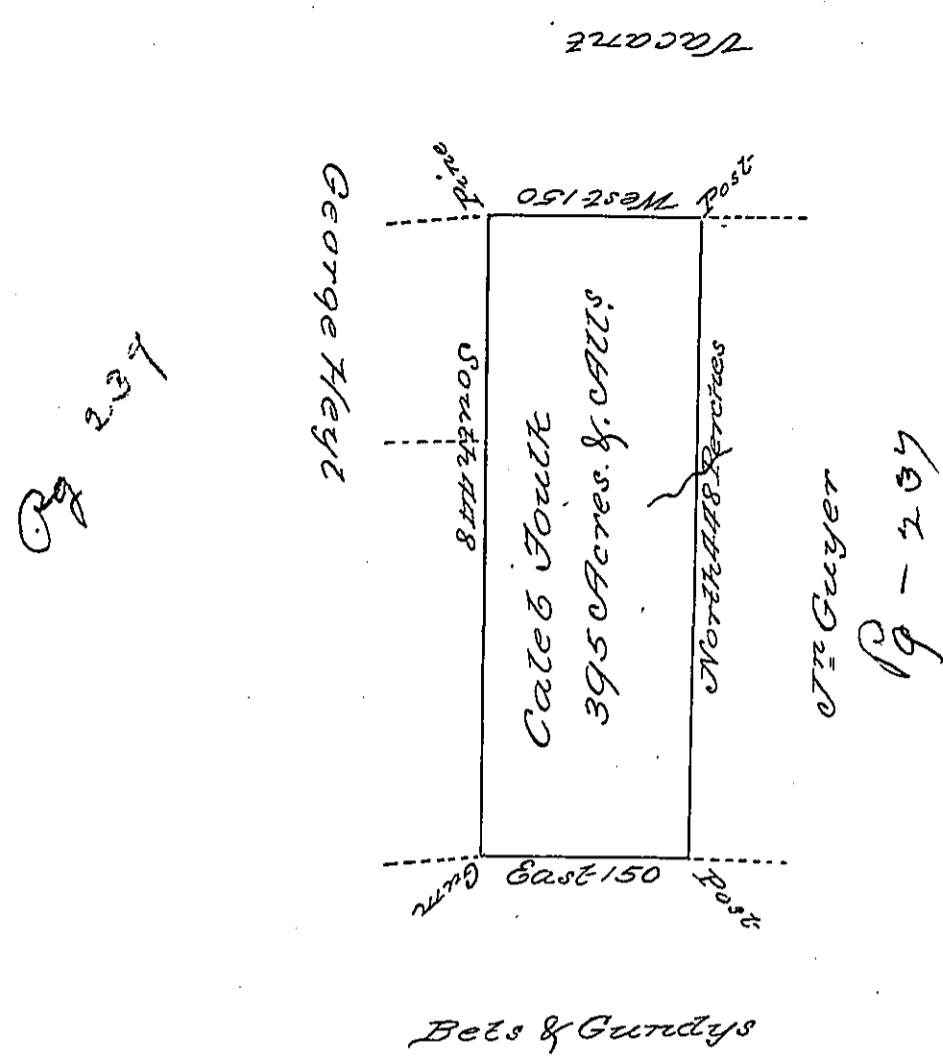 Vacant
Pine
West 150
Post
George Heyl
South 448
Caleb Foulk
395 Acres. & All:
North 448 Perches
Jnº Guyer
Pg - 237
Pg 237
Gum
East 150
Post
Bets & Gundys